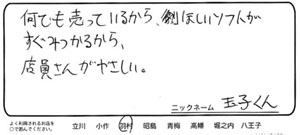 何でも売っているから、ほしいソフトが
すぐみつかるから、
店員さんがやさしい。
ニックネーム 玉子くん
よく利用されるお店を
○で囲んでください。
立川 小作 羽村 昭島 青梅 高幡 堀之内 八王子